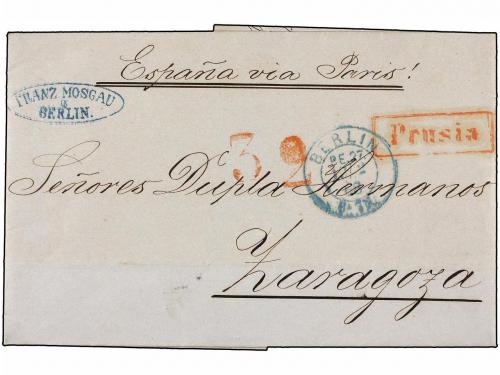 España via Paris!
FRANZ MOSGAU
&
BERLIN.
Prusia
32
BERLIN
27
Señores Dupla Hermanos
Zaragoza